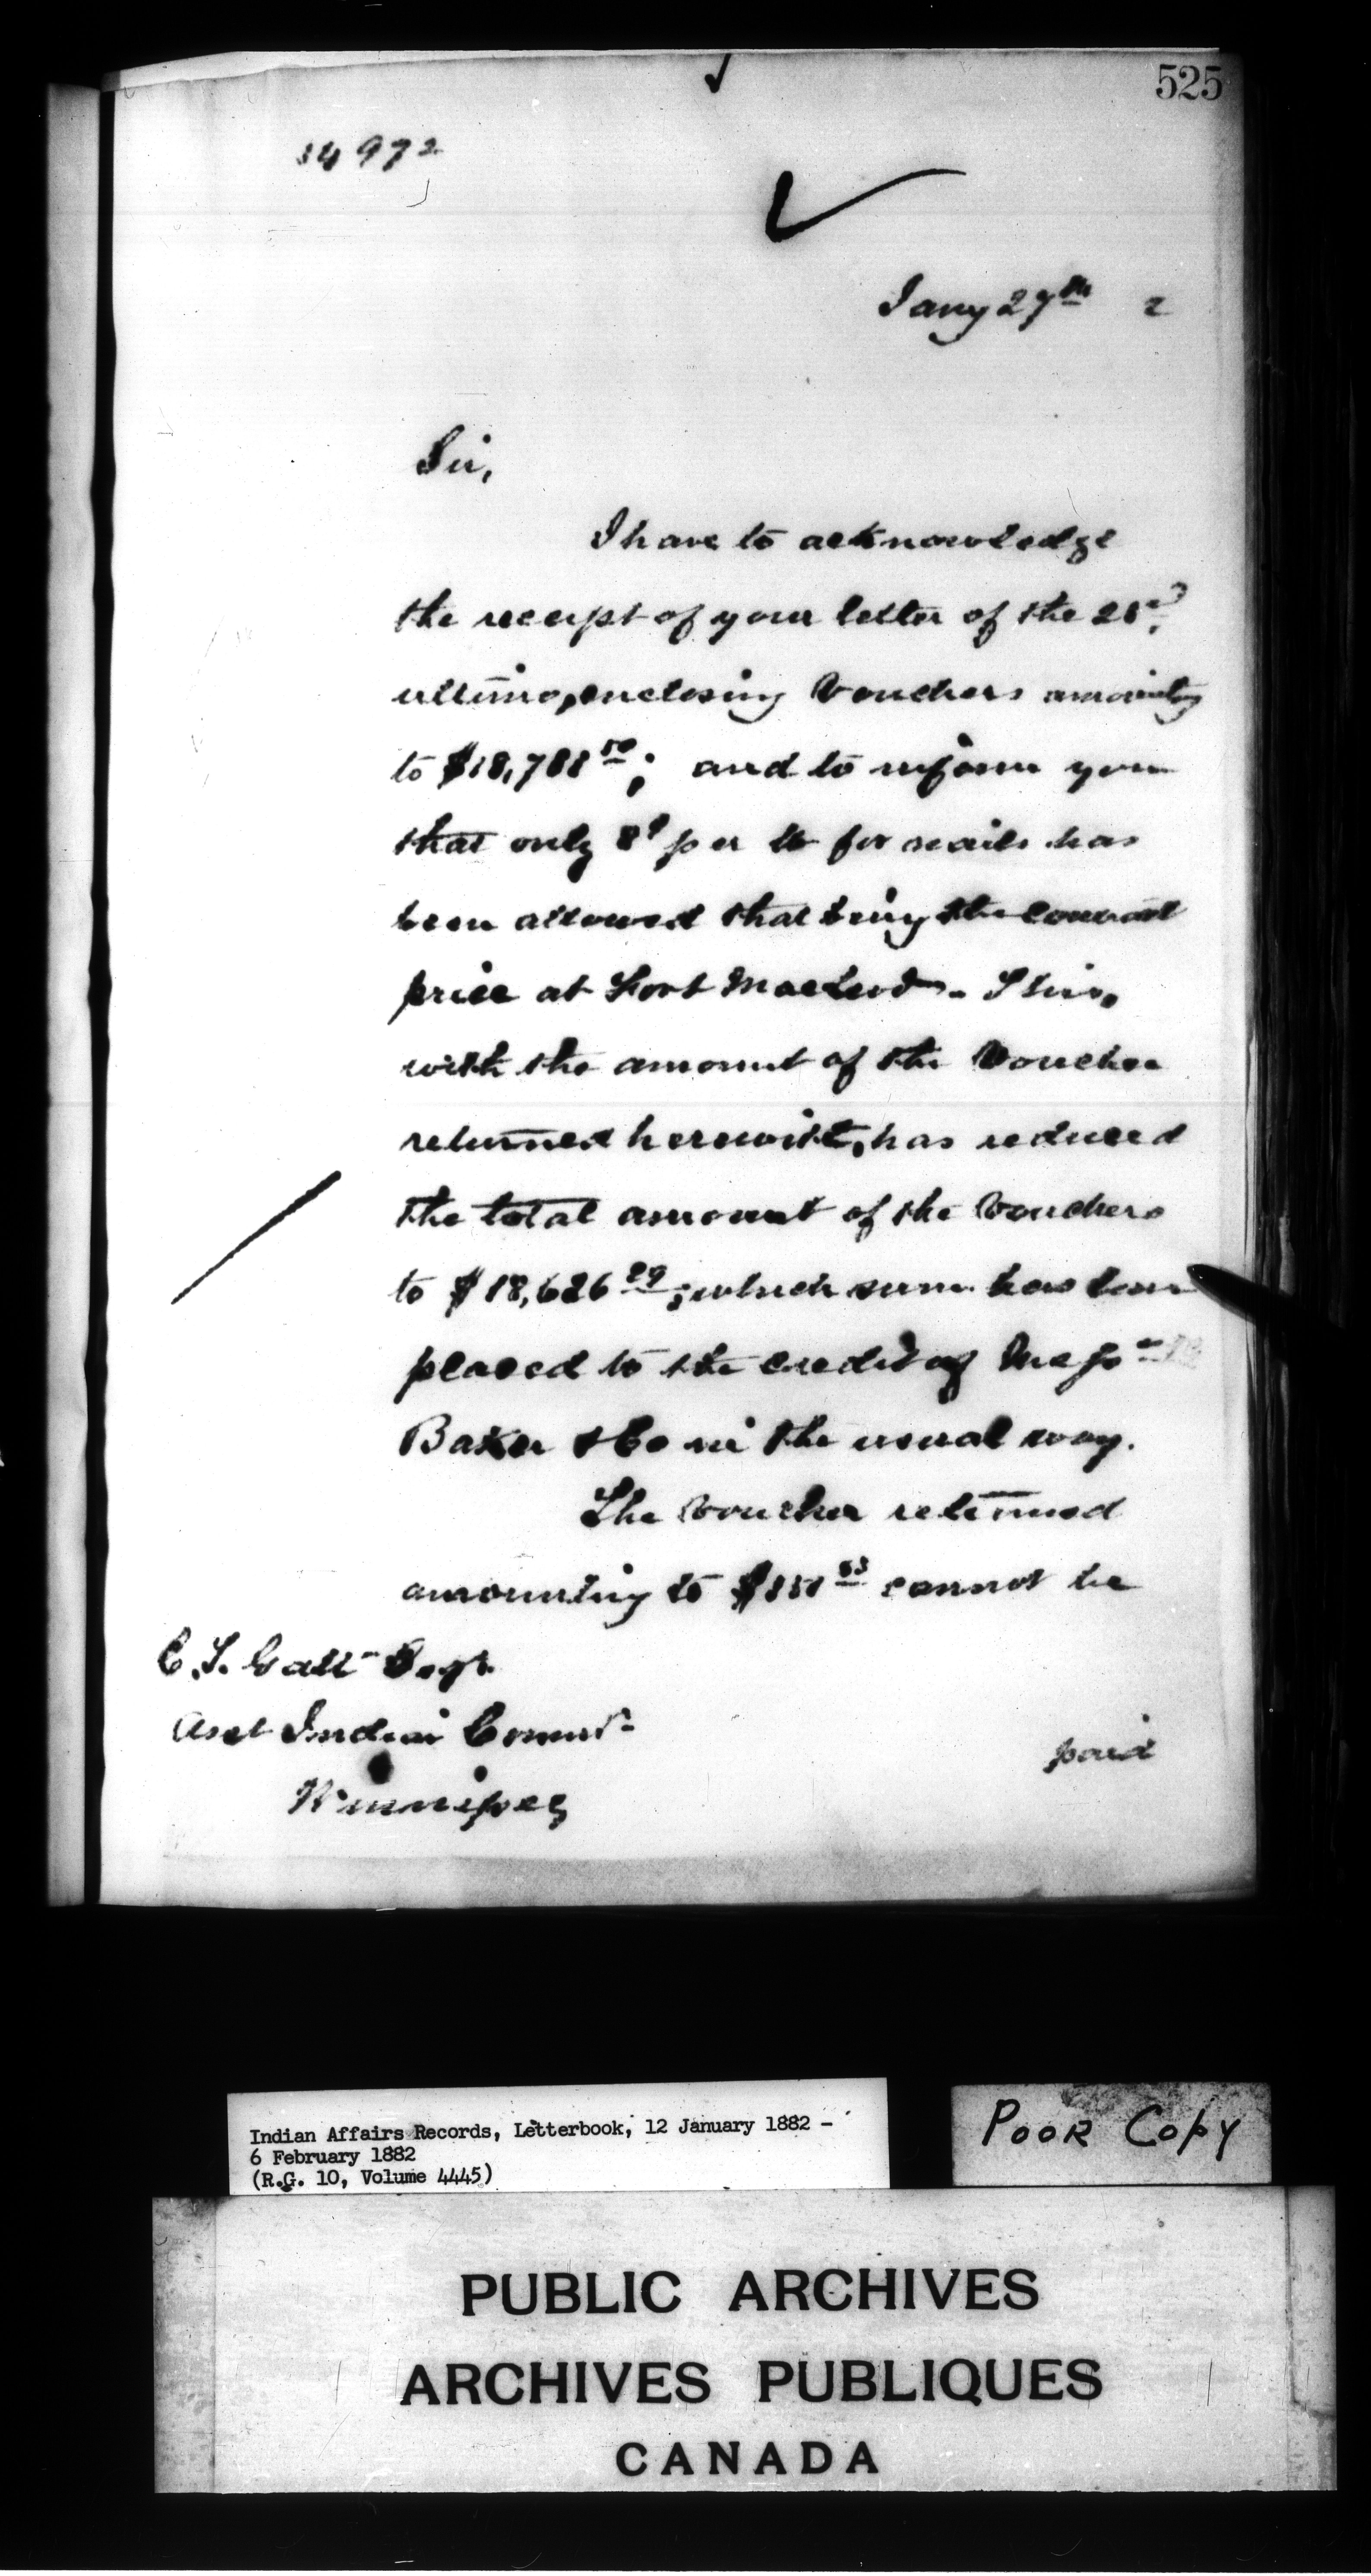 525
34972
Jany 27th 2
Sir,
I have to acknowledge
the receipt of your letter of the
ultimo, enclosing Vouchers amounting
to $18,788 50; and to inform you
that only 8¢ per lb for nails has
been allowed that being the contract
price at Fort MacLeod. This,
with the amount of the Voucher
returned herewith, has reduced
the total amount of the Vouchers
to $18,626 29; which sum has been
placed to the credit of
Baker & Co in the usual way.
The Voucher returned
amounting to cannot be
E.T. Galt Esqr.
Asst Indian Commr
Winnipeg
paid
Indian Affairs Records, Letterbook, 12 January 1882 -
6 February 1882
(R.G. 10, Volume 4445)
POOR COPY
PUBLIC ARCHIVES
ARCHIVES PUBLIQUES
CANADA